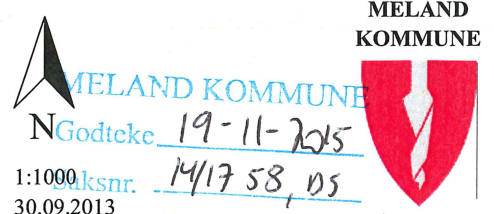 MELAND
KOMMUNE
MELAND KOMMUNE
N
Godteke 19-11-2015
Saksnr. 14/1758, DS
1:1000
30.09.2013